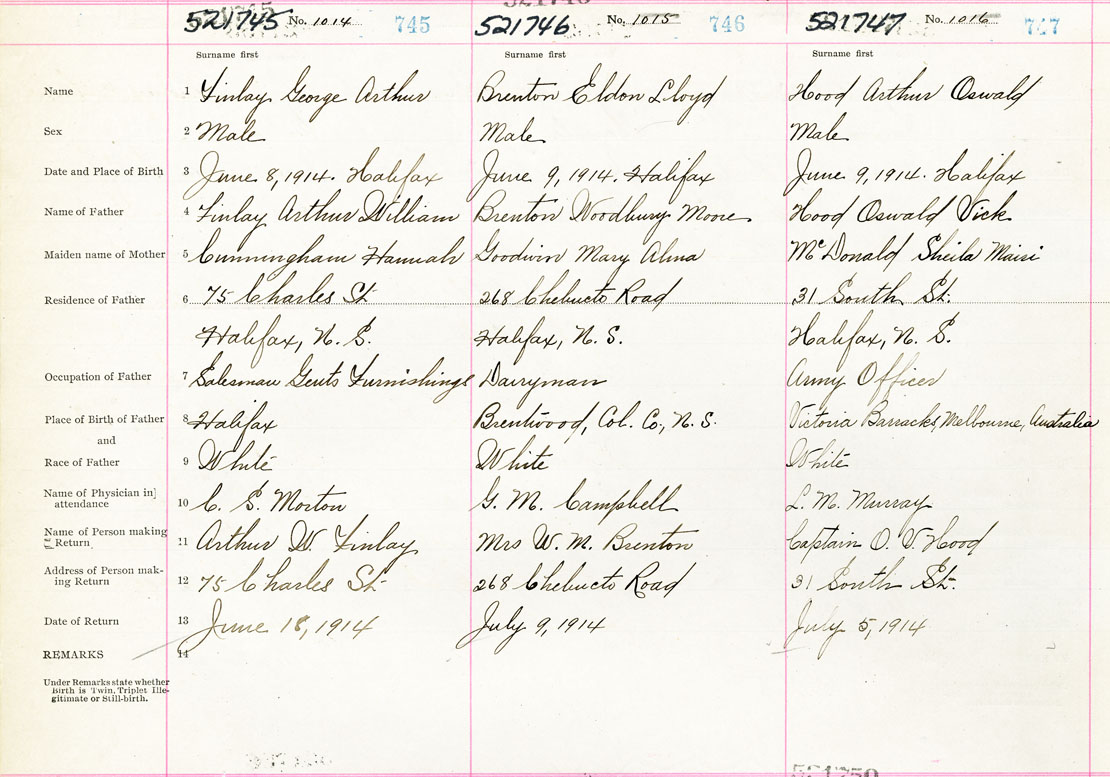 521745 No. 1014 745 521746 No. 1015 746 521747 No. 1016 747
Surname first Surname first Surname first
Name 1 Finlay George Arthur Brenton Eldon Lloyd Hood Arthur Oswald
Sex 2 Male Male Male
Date and Place of Birth 3 June 8, 1914. Halifax June 9, 1914. Halifax June 9, 1914. Halifax
Name of Father 4 Finlay Arthur William Brenton Woodbury Moore Hood Oswald Vick
Maiden name of Mother 5 Cunningham Hannah Goodwin Mary Alma McDonald Sheila Mairi
Residence of Father 6 75 Charles St 268 Chebucto Road 31 South St.
Halifax, N. S. Halifax, N. S. Halifax, N. S.
Occupation of Father 7 Salesman Gents Furnishings Dairyman Army Officer
Place of Birth of Father 8 Halifax Brentwood, Col. Co., N. S. Victoria Barracks, Melbourne, Australia
and
Race of Father 9 White White White
Name of Physician in
attendance 10 C. S. Morton G. M. Campbell L. M. Murray
Name of Person making
Return 11 Arthur W. Finlay Mrs W. M. Brenton Captain O. V. Hood
Address of Person mak-
ing Return 12 75 Charles St 268 Chebucto Road 31 South St.
Date of Return 13 June 18, 1914 July 9, 1914 July 5, 1914
REMARKS 14
Under Remarks state whether
Birth is Twin, Triplet Ille-
gitimate or Still-birth.